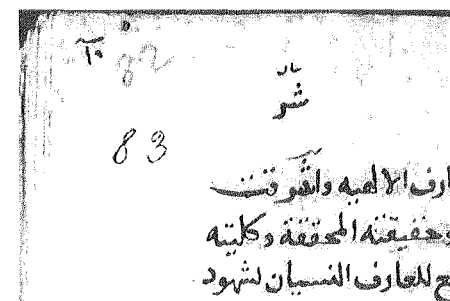 82
83
ارف الالهيه واتفوقت
وحقيقته المحققة وكليته
ع للعارف النسيان لشهود